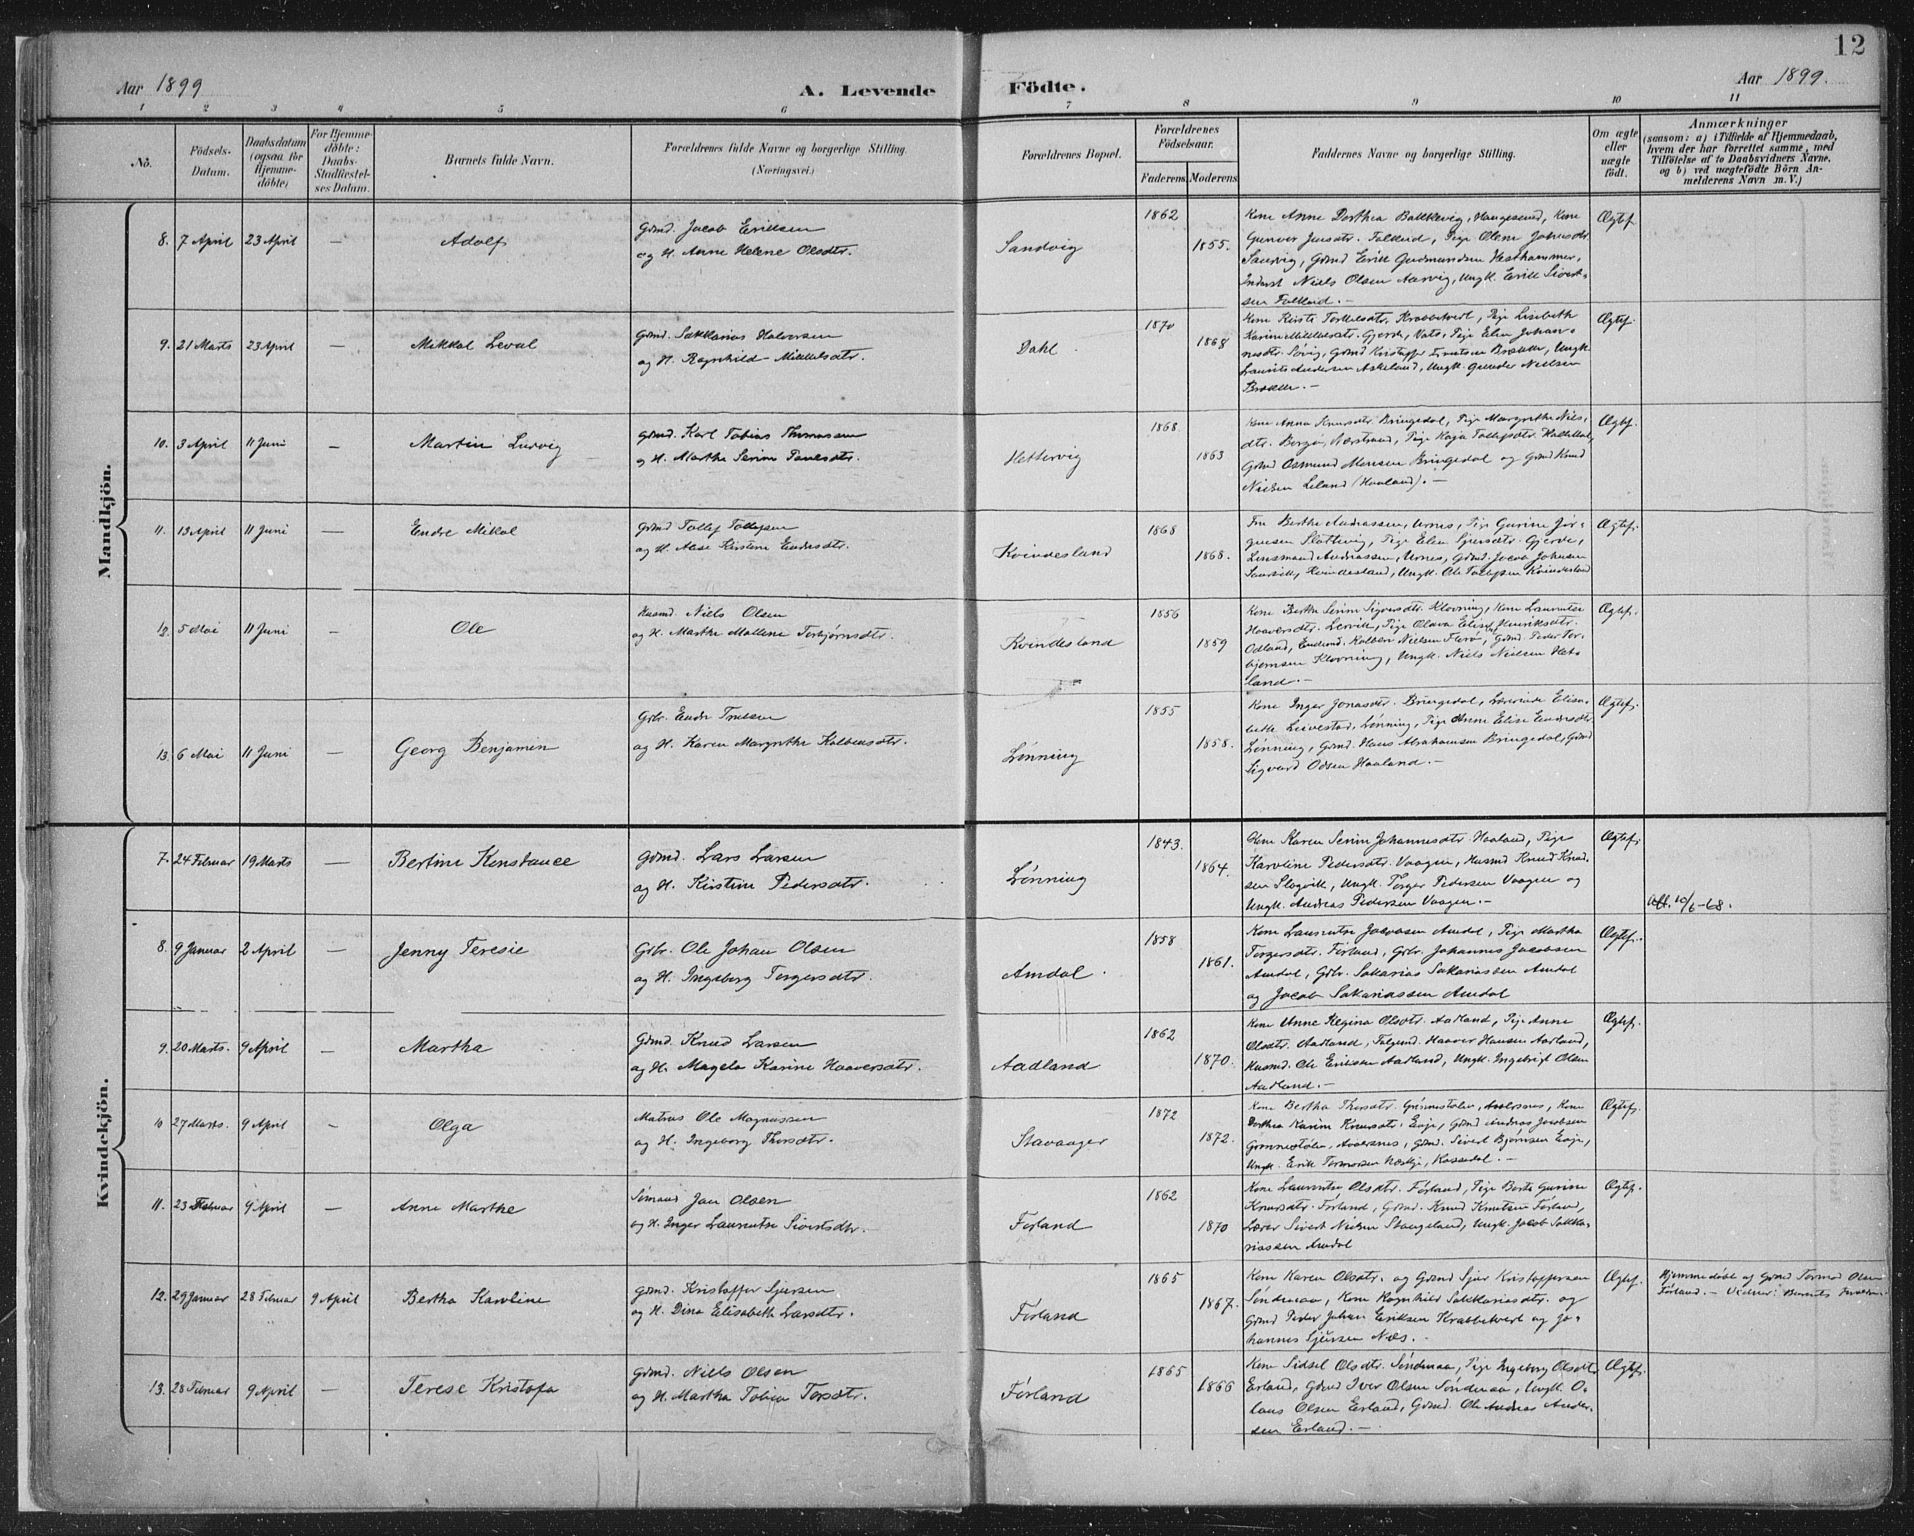 12
Aar 1899
A. Levende
Födte.
Aar 1899.
1 2 3 4 5 6 7 8 9 10 11
No.
Födsels-
Datum.
Daabsdatum
(ogsaa for
Hjemme-
döbte)
For Hjemme-
döbte:
Daabs-
Stadfæstel-
ses Datum.
Barnets fulde Navn.
Forældrenes fulde Navne og borgerlige Stilling.
(Næringsvei.)
Forældrenes Bopæl.
Forældrenes
Födselsaar.
Faderens Moderens
Faddernes Navne og borgerlige Stilling.
Om ægte
eller
uægte
födt.
Anmærkninger
(saasom: a) i Tilfælde af Hjemmedaab,
hvem der har forrettet samme, med
Tilföielse af to Daabsvidners Navne,
og b) ved uægtefödte Börn An-
melderens Navn m. V.)
Mandkjön.
8. 7 April 23 April — Adolf
Grmd. Jacob Eriksen
og H. Anne Helene Olsdtr.
Sandvig
1862
1855.
Kone Anne Dorthea Bakkevig, Haugesund, Kone
Gunvor Jensdtr. Falkeid, Pige Olene Johnsdtr.
Saurvig, Grmd Erik Gudmundsen Hesthammer,
Inderst Niels Olsen Aarvig, Ungk. Erik Sivert-
sen Falkeid. —
Ægtef.
9. 21 Marts 23 April — Mikkal Leval
Grmd. Sakkarias Halvorsen
og H. Ragnhild Mikkelsdtr.
Dahl
1870
1868
Kone Kirste Torkelsdtr. Krabbetveit, Pige Lisebeth
Karine Mikkelsdtr. Gjerde, Vats, Pige Elen Johan-
nesdtr. Søvig, Grmd Kristoffer Brække, Ungk.
Laurits Andersen Askeland, Ungk. Gunder Nielsen
Brække. —
Ægtef.
10. 3 April 11 Juni — Martin Ludvig
Grmd. Karl Tobias Thomassen
og H. Marthe Serine Paulsdtr.
Hettervig
1868
1863
Kone Anna Knursdtr. Bringedal, Pige Margrethe Niels-
dtr. Borgø, Nærstrand, Pige Kaja Tollefsdtr.
Grmd Osmund Monsen Bringedal og Grmd Knud
Nielsen Leland (Haaland). —
Ægtef.
11. 13 April 11 Juni — Endre Mikal
Grmd Tollef Tollefsen
og H. Kirstine Endresdtr.
Kvindesland
1868
1868.
Fru Berthe Andreassen, Urnes, Pige Gurine Jør-
gensen Slottevig, Pige Elen Sjursdtr. Gjerde,
Lensmand Andreassen, Urnes, Grmd. Jacob Johnsen
Kvindesland, Ungk. Ole Tollefsen Kvindesland
Ægtef.
12. 5 Mai 11 Juni — Ole
Husmd. Niels Olsen
og H. Marthe Mallene Torbjørnsdtr.
Kvindesland
1856
1859
Kone Berthe Serine Sigversdtr. Klovning, Kone Laurentse
Haaversdtr. Lervik, Pige Olava Elise Henriksdtr.
Odland, Kolben Nielsen Fterø, Grmd. Peder Tor-
bjørnsen Klovning, Ungk. Niels Nielsen Het-
land. —
Ægtef.
13. 6 Mai 11 Juni — Georg Benjamin
Grbr. Endre Trulsen
og H. Karen Margrethe Kolbensdtr.
Lønning
1855
1858.
Kone Inger Jonasdtr. Bringedal, Lærerinde Elisa-
beth Leivestad, Lønning, Pige Anne Elise Endresdtr.
Lønning, Grmd. Hans Abrahamsen Bringedal, Grmd
Sigvard Odsen Haaland. —
Ægtef.
Kvindekjön.
7. 24 Februar 19 Marts — Bertine Konstance
Grmd. Lars Larsen
og H. Kirstine Pedersdtr.
Lønning
1843.
1864.
Kone Karen Serine Johannesdtr. Haaland, Pige
Karoline Pedersdtr. Vaagen, Husmd Knud Knud-
sen Slogvik, Ungk. Torger Pedersen Vaagen og
Ungk. Andreas Pedersen Vaagen. —
Ægtef.
Att. 10/6-68.
8. 9 Januar 2 April — Jenny Teresie
Grbr. Ole Johan Olsen
og H. Ingeborg Torgersdtr.
Amdal.
1858
1861.
Kone Laurentse Jacobsen Amdal, Pige Martha
Torgersdtr. Førland, Grbr. Johannes Jacobsen
Amdal, Grbr. Sakarias Sakariassen Amdal
og Jacob Sakariassen Amdal
Ægtef.
9. 20 Marts. 9 April — Martha
Grmd. Knud Larsen
og H. Magela Karine Haaversdtr.
Aadland
1862
1870.
Kone Anne Regina Olsdtr. Aadland, Pige Anne
Olsdtr. Aadland, Haaver Hansen Aadland,
Husmd. Ole Eriksen Aadland, Ungk. Ingebrigt Olsen
Aadland. —
Ægtef.
10 27 Marts. 9 April — Olga
Matros Ole Magnussen
og H. Ingeborg Thorsdtr.
Stavanger
1872
1872.
Kone Bertha Thorsdtr. Grønnestølen, Avaldsnes, Kone
Dorthea Karine Knursdtr. Eeje, Grmd Andreas Jacobsen
Grønnestølen, Avaldsnes, Grmd. Sivert Bjørnsen Eeje,
Ungk. Erik Tormodsen
Ægtef.
11. 23 Februar 9 April — Anne Marthe
Sømand Jan Olsen
og H. Inger Laurentse Sivertsdtr.
Førland
1862
1870
Kone Laurentse Olsdtr. Førland, Pige Berte Gurine
Knursdtr. Førland, Grmd. Knud Knutsen Førland,
Lærer Sivert Nielsen Stangeland, Ungk. Jacob Sakka-
riassen Amdal
Ægtef.
12. 29 Januar 28 Februar 9 April Bertha Karoline
Grmd. Kristoffer Sjursen
og H. Dina Elisabeth Larsdtr.
Førland
1865
1867.
Kone Karen Olsdtr. og Grmd Sjur Kristoffersen
Søndenaa, Kone Ragnhild Sakkariasdtr. og
Grmd Peder Johan Eriksen Krabbetveit og Jo-
hannes Sjursen Næs. —
Ægtef.
Hjemmedøbt af Grmd Tormod Olsen
Førland. — Vidner: Barnets
13. 28 Februar 9 April — Terese Kristofa
Grmd. Niels Olsen
og H. Martha Tobia Torsdtr.
Førland
1865
1866
Kone Sidsel Olsdtr. Søndenaa, Pige Ingeborg Olsdtr.
Erland, Grmd Iver Olsen Søndenaa, Ungk. O-
laus Olsen Erland, Grmd. Ole Andreas Ander-
sen Erland. —
Ægtef.